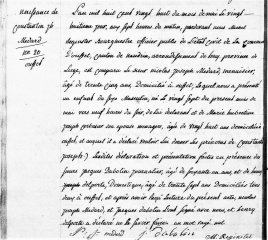 naissance de
constantin Jh
Medard
no 20
ouffet
L'an mil huit cent vingt huit du mois de mai le vingt
huitieme jour, aux sept heures du matin, pardevant nous
bourguemestre officier public de l'état civil de la commune
D'ouffet, canton de nandrin, arrondissement de huy province de
Liege, est comparu le sieur nicolas joseph Medard, menuisier,
âgé de trente cinq ans Domicilié à ouffet, lequel nous a présenté
un enfant du sexe Masculin, né le vingt sept du présent mois de
mai vers neuf heures du soir, de lui déclarant et de Marie hubertine
joseph son épouse menagere, âgée de vingt huit ans domiciliée
ouffet, et auquel il a déclaré donner les prénoms de constantin
joseph; Lesdites déclaration et présentation faites en présence de
jacques Dabolin journalier, âgé de soixante un ans, et de henry
joseph delgotte, Domestique, âgé de trente sept ans Domiciliés tous
deux à ouffet, et après avoir lecture du présent acte, nicolas
joseph Medard, et jacques Dabolin l'ont signé avec nous, et henry
delgotte a déclaré ne le savoir
N. J. medard J. dabolin